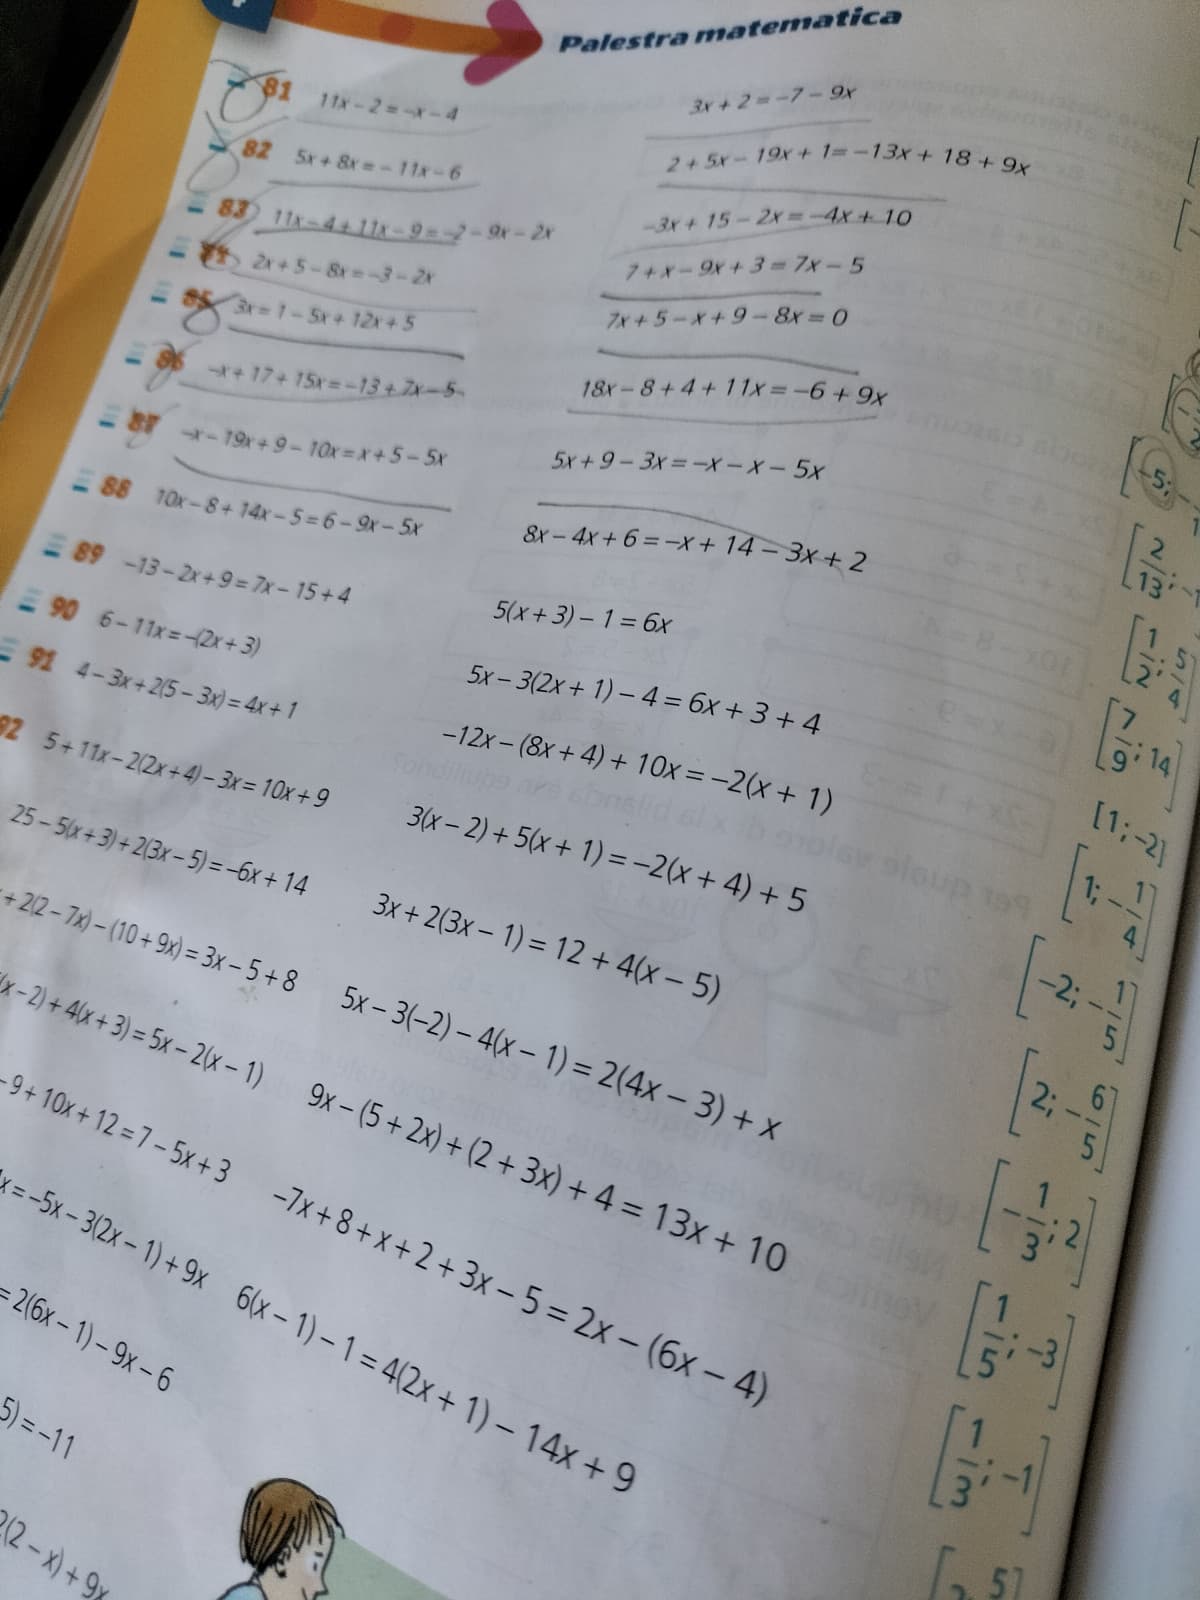 Palestra matematica
81 11x – 2 = –x – 4 3x + 2 = –7 – 9x
82 5x + 8x = – 11x – 6 2 + 5x – 19x + 1 = –13x + 18 + 9x
83 11x – 4 + 11x – 9 = –2 – 9x – 2x –3x + 15 – 2x = –4x + 10
84 2x + 5 – 8x = –3 – 2x 7 + x – 9x + 3 = 7x – 5
85 3x = 1 – 5x + 12x + 5 7x + 5 – x + 9 – 8x = 0
86 –x + 17 + 15x = –13 + 7x – 5 18x – 8 + 4 + 11x = –6 + 9x
87 –x – 19x + 9 – 10x = x + 5 – 5x 5x + 9 – 3x = –x – x – 5x
88 10x – 8 + 14x – 5 = 6 – 9x – 5x 8x – 4x + 6 = –x + 14 – 3x + 2
89 –13 – 2x + 9 = 7x – 15 + 4 5(x + 3) – 1 = 6x
90 6 – 11x = –(2x + 3) 5x – 3(2x + 1) – 4 = 6x + 3 + 4
91 4 – 3x + 2(5 – 3x) = 4x + 1 –12x – (8x + 4) + 10x = –2(x + 1)
92 5 + 11x – 2(2x + 4) – 3x = 10x + 9 3(x – 2) + 5(x + 1) = –2(x + 4) + 5
25 – 5(x + 3) + 2(3x – 5) = –6x + 14 3x + 2(3x – 1) = 12 + 4(x – 5)
+ 2(2 – 7x) – (10 + 9x) = 3x – 5 + 8 5x – 3(–2) – 4(x – 1) = 2(4x – 3) + x
(x – 2) + 4(x + 3) = 5x – 2(x – 1) 9x – (5 + 2x) + (2 + 3x) + 4 = 13x + 10
– 9 + 10x + 12 = 7 – 5x + 3 –7x + 8 + x + 2 + 3x – 5 = 2x – (6x – 4)
x = –5x – 3(2x – 1) + 9x 6(x – 1) – 1 = 4(2x + 1) – 14x + 9
= 2(6x – 1) – 9x – 6
5) = –11
2(2 – x) + 9x
[–5;
[2/13; –1
[1/2; 5/4]
[7/9; 14]
[1; –2]
[1; –1/4]
[–2; –1/5]
[2; –6/5]
[–1/3; 2]
[1/5; –3]
[1/3; –1]
5]